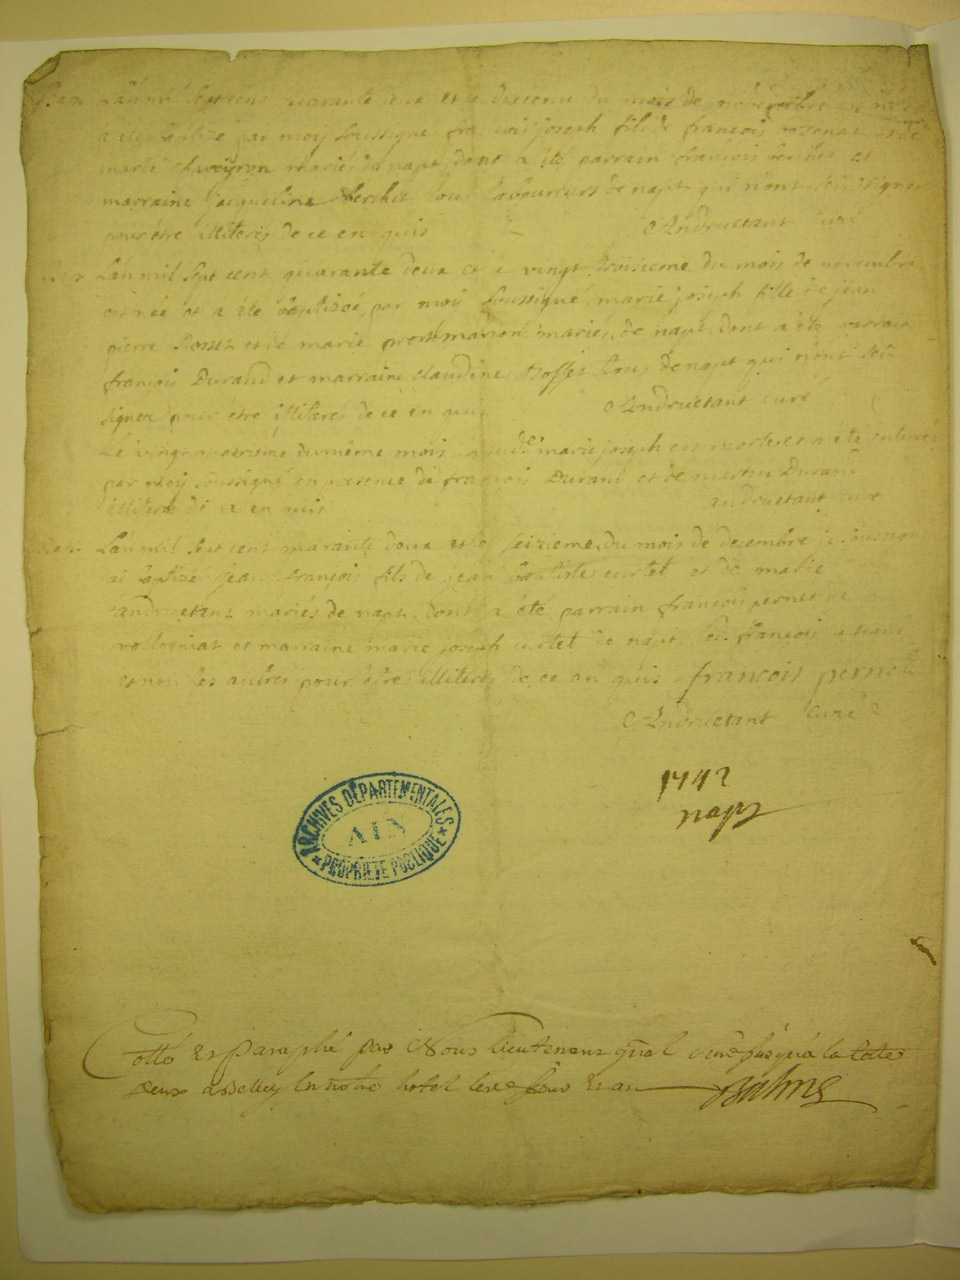 L'an mil sept cens quarante deux et le treizieme du mois de novembre
a été baptizé par moy soussigné françois joseph fils de françois
marie chaveyron mariés de napt, dont a été parrain françois berchet et
marraine jacqueline berchet tous laboureurs de napt qui n'ont sçu signer
pour être illiterés de ce enquis Andruetant curé
L'an mil sept cent quarante deux et le vingt troisieme du mois de novembre
est née et a été baptisée par moy soussigné, marie joseph fille de jean
pierre Rosset et de marie mariés de napt, dont a été parrain
françois Durand et marraine claudine Rosset tous de napt qui n'ont sçu
signer pour être illiterés de ce enquis Andruetant curé
Le vingt quatrieme du même mois marie joseph est morte et a été enterrée
par moy soussigné en presence de françois Durand et de martin Durand
illiterés de ce enquis andruetant curé
L'an mil sept cens quarante deux et le seizieme du mois de decembre je soussigné
ai baptizé jean françois fils de jean baptiste curtet et de marie
andruetant mariés de napt, dont a été parrain françois pernet de
vollognat et marraine marie joseph curtet de napt, led. françois
et non les autres pour être illiterés de ce enquis françois pernet
Andruetant curé
1742
napt
ARCHIVES DÉPARTEMENTALES
AIN
PROPRIÉTÉ PUBLIQUE
Cotté et Paraphé par Nous lieutenant gnal
deux a Belley en notre hotel